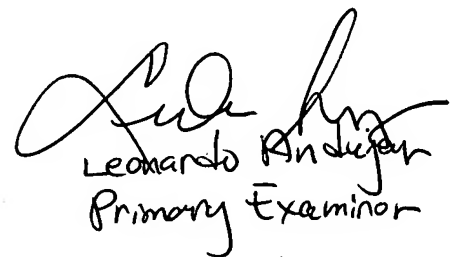 Leonardo Andujar
Primary Examinor